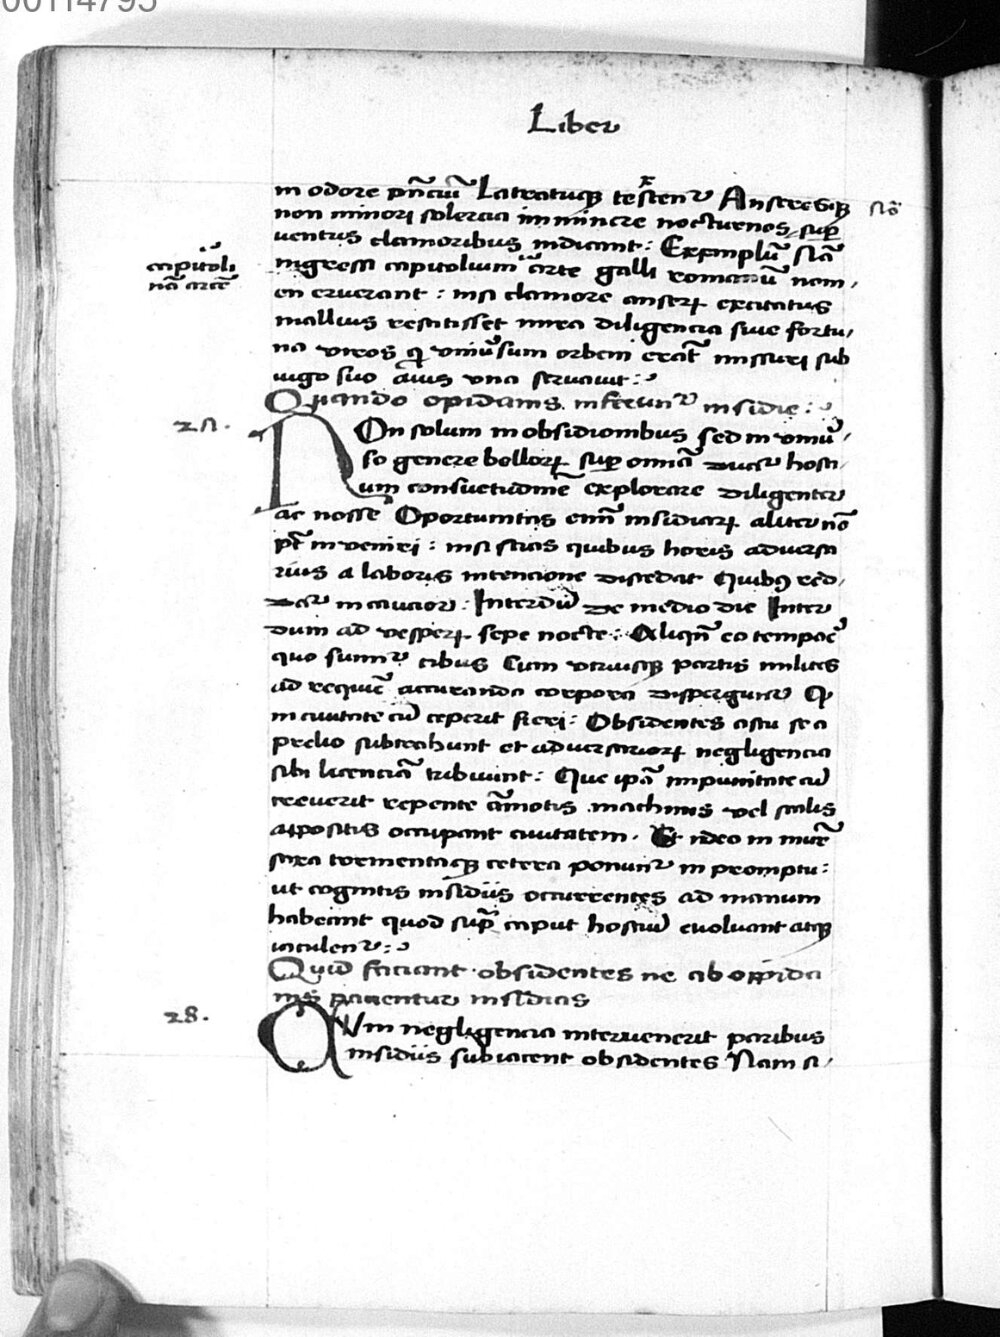 00114795
Liber
in odore pñciũ Latratuqꝫ testentᷣ Anseresqꝫ
non minori solercia imminere nocturnos suꝑ
uentus clamoribus indicant : Exemplũ
ingressi capitolium arte galli romanũ nom,
en eruerant : nisi clamore anseꝝ excitatus
mallius restitisset mira diligencia siue fortu,
na viros qͥ vniũsum orbem erãt missuri sub
iugo suo auis vna seruauit :
capitoli
nã arcẽ
Quando opidanis inferuntᷣ insidie :
27.
NOn solum in obsidionibus sed in vniũ,
so genere belloꝝ suꝑ omĩa ducitᷣ hosti,
um consuetudinẽ explorare diligenter
ac nosse Oportunitas enĩ insidiaꝝ aliter nõ
pt̃ inveniri : nisi scias quibus horis aduersa
rius a laboris intencione discedat Quibꝰ red,
datᷣ incaucior : Interdũ de medio die Inter
dum ad vespeꝝ sepe nocte : Aliqñ eo tempoẽ
quo sumitᷣ cibus Cum vtriusqꝫ partis milites
ad requiẽ accuranda corpora disperguntᷣ Qͩ
in ciuitate cũ ceperit fieri : Obsidentes astu se a
prelio subtrahunt et aduersarioꝝ negligencia
sibi licenciã tribuunt : Que ipã impunitate cũ
creuerit repente ãmotis machinis vel scalis
appositis occupant ciuitatem . Et ideo in muris
saxa tormentaqꝫ cetera ponuntᷣ in promptu :
ut cognitis insidiis occurrentes ad manum
habeant quod supᷓ caput hostiũ euoluant atqꝫ
iaculentᷣ :
Quid faciant obsidentes ne ab oppida
nis paciantur insidias
28.
CUm negligencia interuenerit paribus
insidiis subiacent obsidentes Nam si,